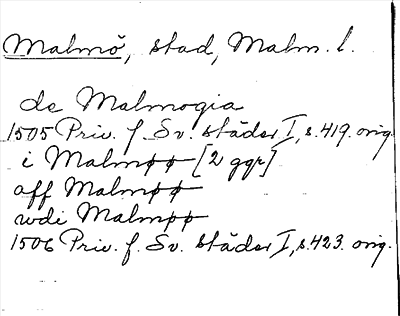 Malmö, stad, Malm. l.
de Malmogia
1505 Priv. f. Sv. städer I, s. 419. orig.
i Malmøø [2 ggr]
aff Malmøø
wdi Malmøø
1506 Priv. f. Sv. städer I, s. 423. orig.